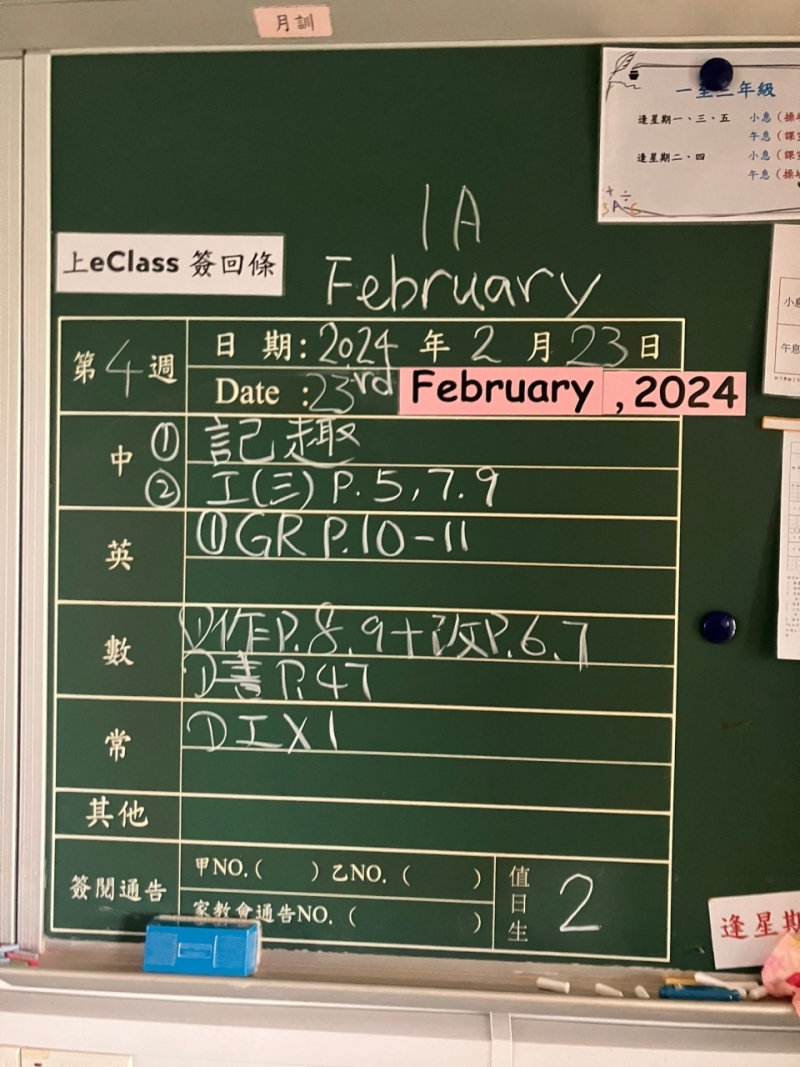 月訓
一至三年級
逢星期一、三、五 小息（操場
午息（課室
逢星期二、四 小息（課室
午息（操場
1A
上eClass 簽回條
February
小息
午息
第4週
日 期：2024 年 2 月 23 日
Date : 23rd February , 2024
中 ① 記趣
② 工(三) P.5,7.9
英 ① GR P.10-11
數 ① 作 P.8.9+改P.6.7
① 書 P.47
常 ① 工 X 1
其他
簽閱通告 甲NO.( ) 乙NO. ( )
家教會通告NO. ( )
值日生 2
逢星期